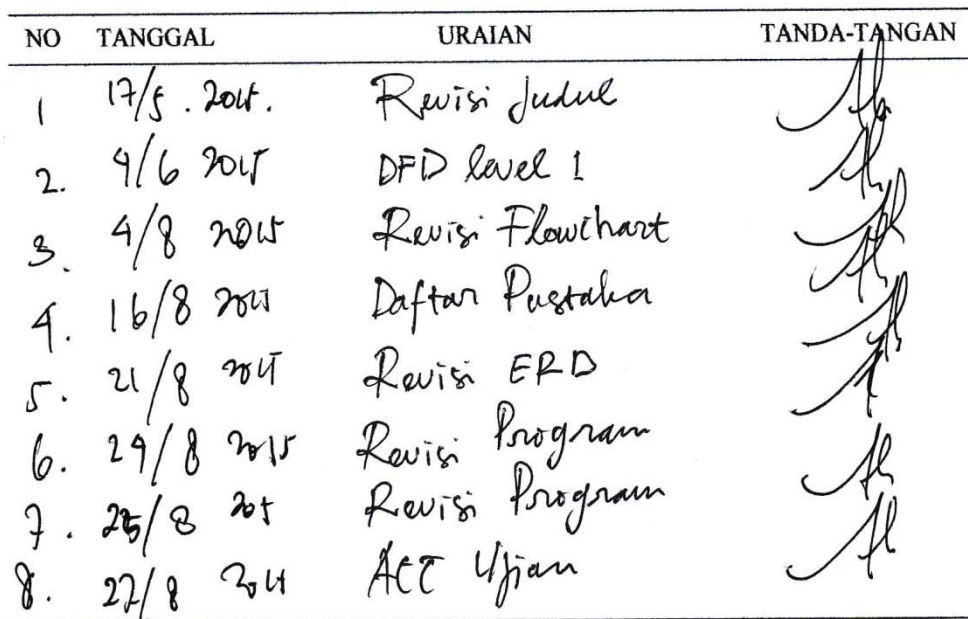 NO TANGGAL URAIAN TANDA-TANGAN
1 17/5. 2015. Revisi Judul
2. 4/6 2015 DFD level 1
3. 4/8 2015 Revisi Flowchart
4. 16/8 2015 Daftar Pustaka
5. 21/8 2015 Revisi ERD
6. 24/8 2015 Revisi Program
7. 25/8 205 Revisi Program
8. 27/8 2015 ACC Ujian